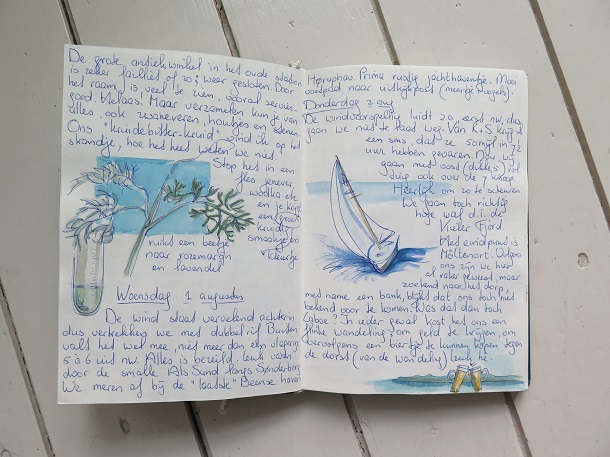 De grote antiekwinkel in het oude station
is zeker failliet of zo; weer gesloten. Door
het raam is veel te zien, vooral servies-
goed. Helaas! Maar verzamelen kun je van
alles, ook zwaneveren, houtjes en stenen.
Ons "kruidebitter-kruid" vind ik op het
strandje, hoe het heet weten we niet.
Stop het in een
fles jenever,
wodka etc
en je krijgt
een groen
kruidig
smaakje en
kleurtje
ruikt een beetje
naar rozemarijn
en lavendel
Woensdag 1 augustus
De wind staat vervelend achterin
dus vertrekken we met dubbel rif. Buiten
valt het wel mee, niet meer dan een vlagerige
5 à 6 uit nw. Alles is bezeild, leuk varen
door de smalle Als Sund langs Sønderborg
We meren af bij de "laatste" Deense haven
Høruphav. Prima rustig jachthaventje. Mooi
voetpad naar uitkijkpost (meertje, vogels).
Donderdag 2 aug
De windvoorspelling luidt zo, eerst nw, dus
gaan we niet te haast weg. Van K+S krijg ik
een sms, dat ze 50 mijl in 7½
uur hebben gevaren. Nou, wij
gaan met oost (dikke 5) vol
tuig ook over de 7 knoop.
Heerlijk om zo te scheuren.
We gaan toch richting
hoge wal d.i. de
Kieler Fjord
Het eindpunt is
Möltenort. Volgens
ons zijn we hier
al vaker geweest, maar
zoekend naar het dorp,
met name een bank, blijkt dat ons toch niet
bekend voor te komen. Was dat dan toch
Laboe? In ieder geval kost het ons een
flinke wandeling om geld te krijgen, om
vervolgens een biertje te kunnen kopen tegen
de dorst (van de wandeling) leuk hè.